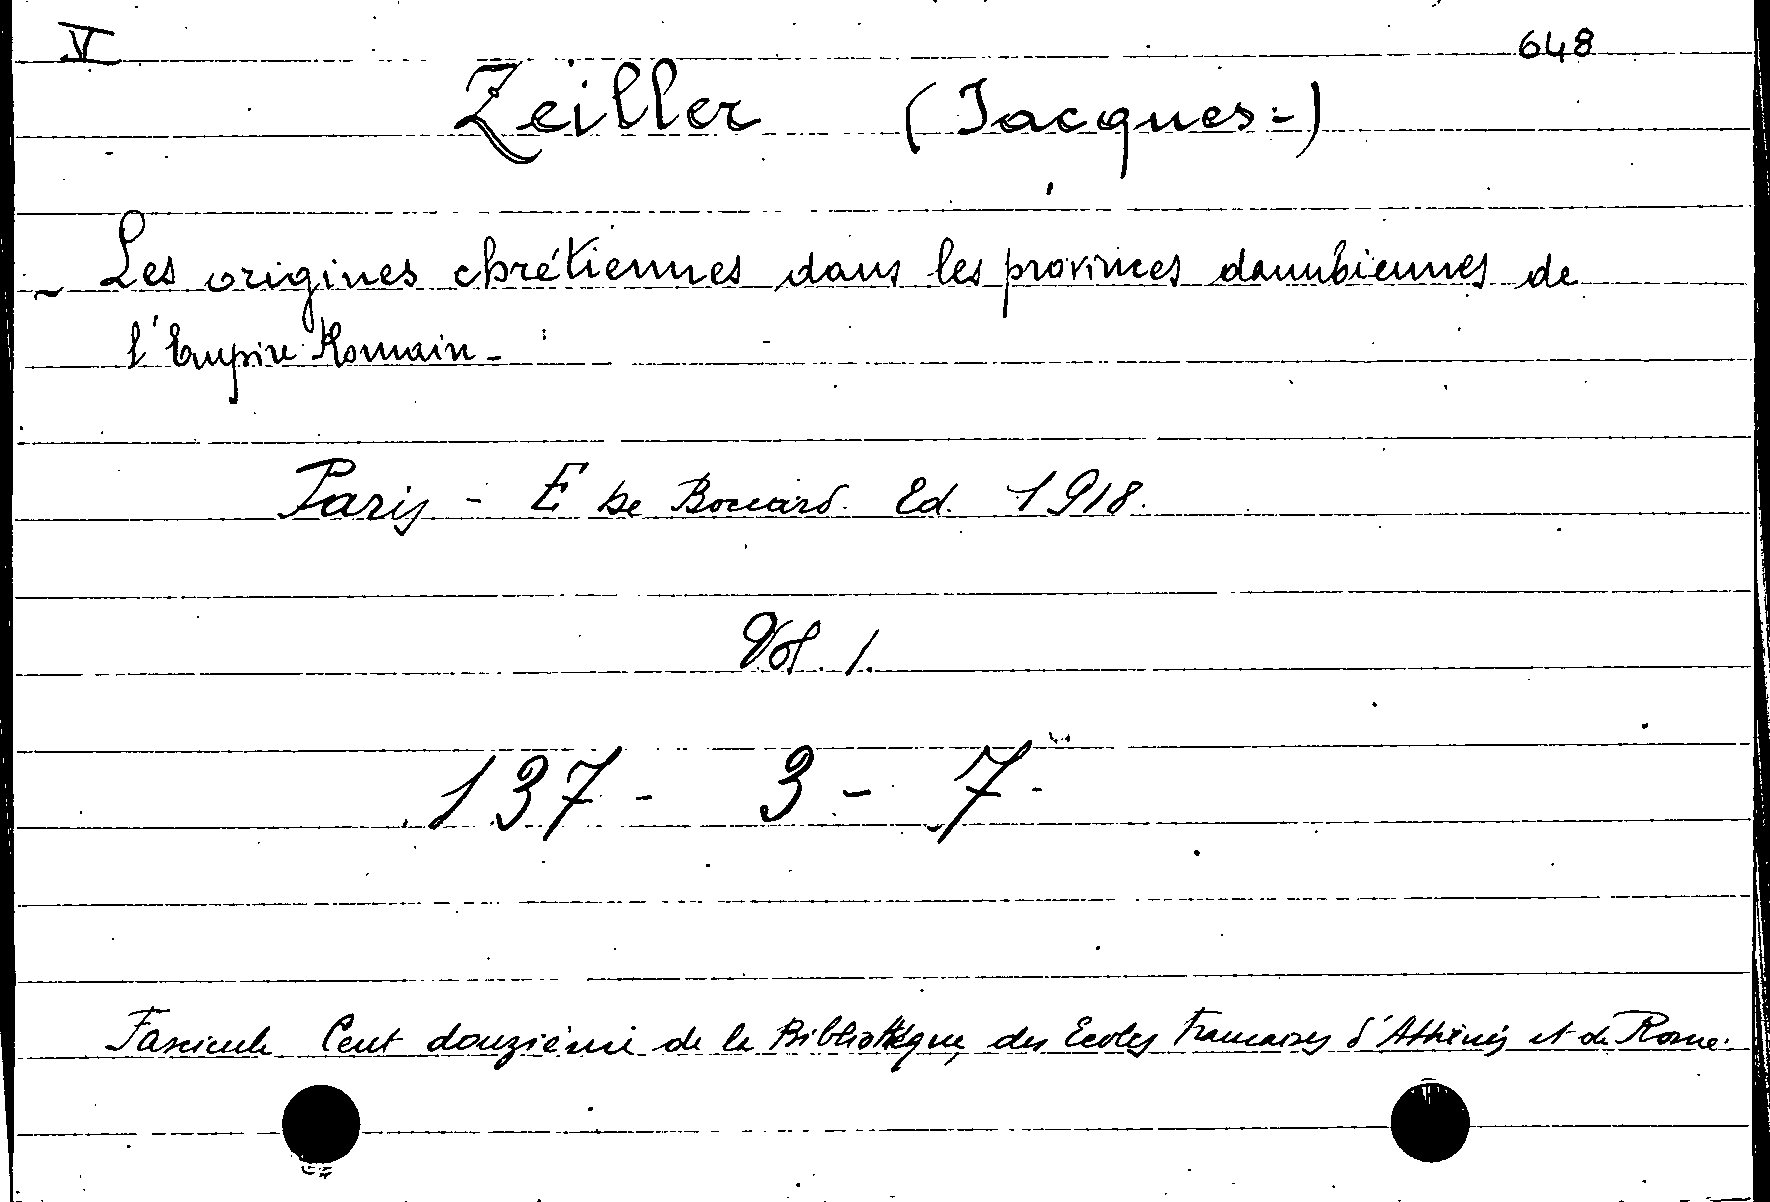 V 648
Zeiller (Jacques=)
- Les origines chrétiennes dans les provinces danubiennes de
l'Empire Romain-
Paris - E de Boccard. Ed. 1918.
Vol. 1.
137 - 3 - 7-
Fascicule Cent douzième de la Bibliothèque des Ecoles Francaises d'Athènes et de Rome.